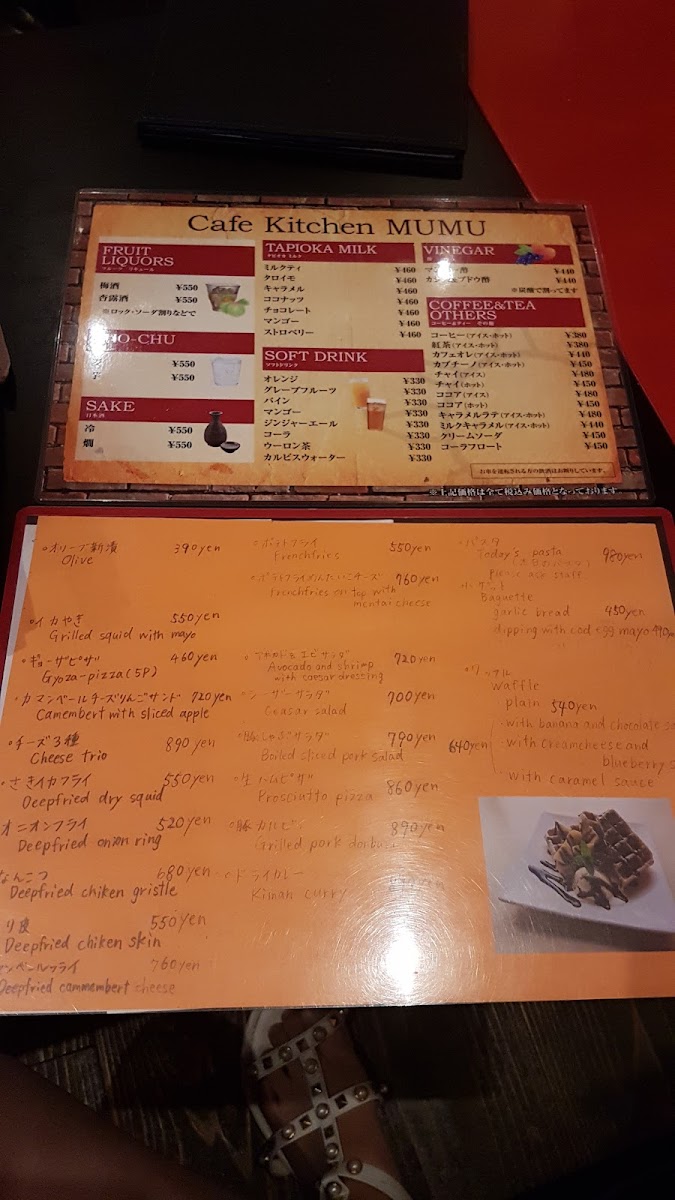 Cafe Kitchen MUMU
FRUIT
LIQUORS
フルーツ リキュール
梅酒 ¥550
杏露酒 ¥550
※ロック・ソーダ割りなどで
O-CHU
¥550
¥550
SAKE
日本酒
冷 ¥550
燗 ¥550
TAPIOKA MILK
タピオカ ミルク
ミルクティ ¥460
タロイモ ¥460
キャラメル ¥460
ココナッツ ¥460
チョコレート ¥460
マンゴー ¥460
ストロベリー ¥460
SOFT DRINK
ソフトドリンク
オレンジ ¥330
グレープフルーツ ¥330
パイン ¥330
マンゴー ¥330
ジンジャーエール ¥330
コーラ ¥330
ウーロン茶 ¥330
カルピスウォーター ¥330
VINEGAR
酢 ¥440
ブドウ酢 ¥440
※炭酸で割ってます
COFFEE&TEA
OTHERS
コーヒー&ティー その他
コーヒー(アイス・ホット) ¥380
紅茶(アイス・ホット) ¥380
カフェオレ(アイス・ホット) ¥440
カプチーノ(アイス・ホット) ¥450
チャイ(アイス) ¥480
チャイ(ホット) ¥450
ココア(アイス) ¥480
ココア(ホット) ¥450
キャラメルラテ(アイス・ホット) ¥480
ミルクキャラメル(アイス・ホット) ¥440
クリームソーダ ¥450
コーラフロート ¥450
お車を運転される方の飲酒はお断りしています。
※上記価格は全て税込み価格となっております
・オリーブ新漬 390yen
Olive
・イカやき 550yen
Grilled squid with mayo
・ギョーザピザ 460yen
Gyoza-pizza(5P)
・カマンベールチーズりんごサンド 720yen
Camembert with sliced apple
・チーズ3種 890yen
Cheese trio
・さきイカフライ 550yen
Deepfried dry squid
オニオンフライ 520yen
Deepfried onion ring
なんこつ 680yen
Deepfried chiken gristle
り皮 550yen
Deepfried chiken skin
ンベールフライ 760yen
Deepfried cammembert cheese
・ポテトフライ 550yen
Frenchfries
・ポテトフライめんたいこチーズ 760yen
Frenchfries on top with
mentai cheese
・アボカドとエビサラダ 720yen
Avocado and shrimp
with caesar dressing
・シーザーサラダ 700yen
Ceasar salad
・豚しゃぶサラダ 790yen
Boiled sliced pork salad
・生ハムピザ 860yen
Prosciutto pizza
・豚カルビ 890yen
Grilled pork
・ドライカレー
Kimah curry
・パスタ
Today's pasta 980yen
Please ask staff
Baguette
garlic bread 450yen
dipping with cod egg mayo
・ワッフル
Waffle
plain 540yen
640yen
・with banana and chocolate
・with creamcheese and
blueberry
・with caramel sauce